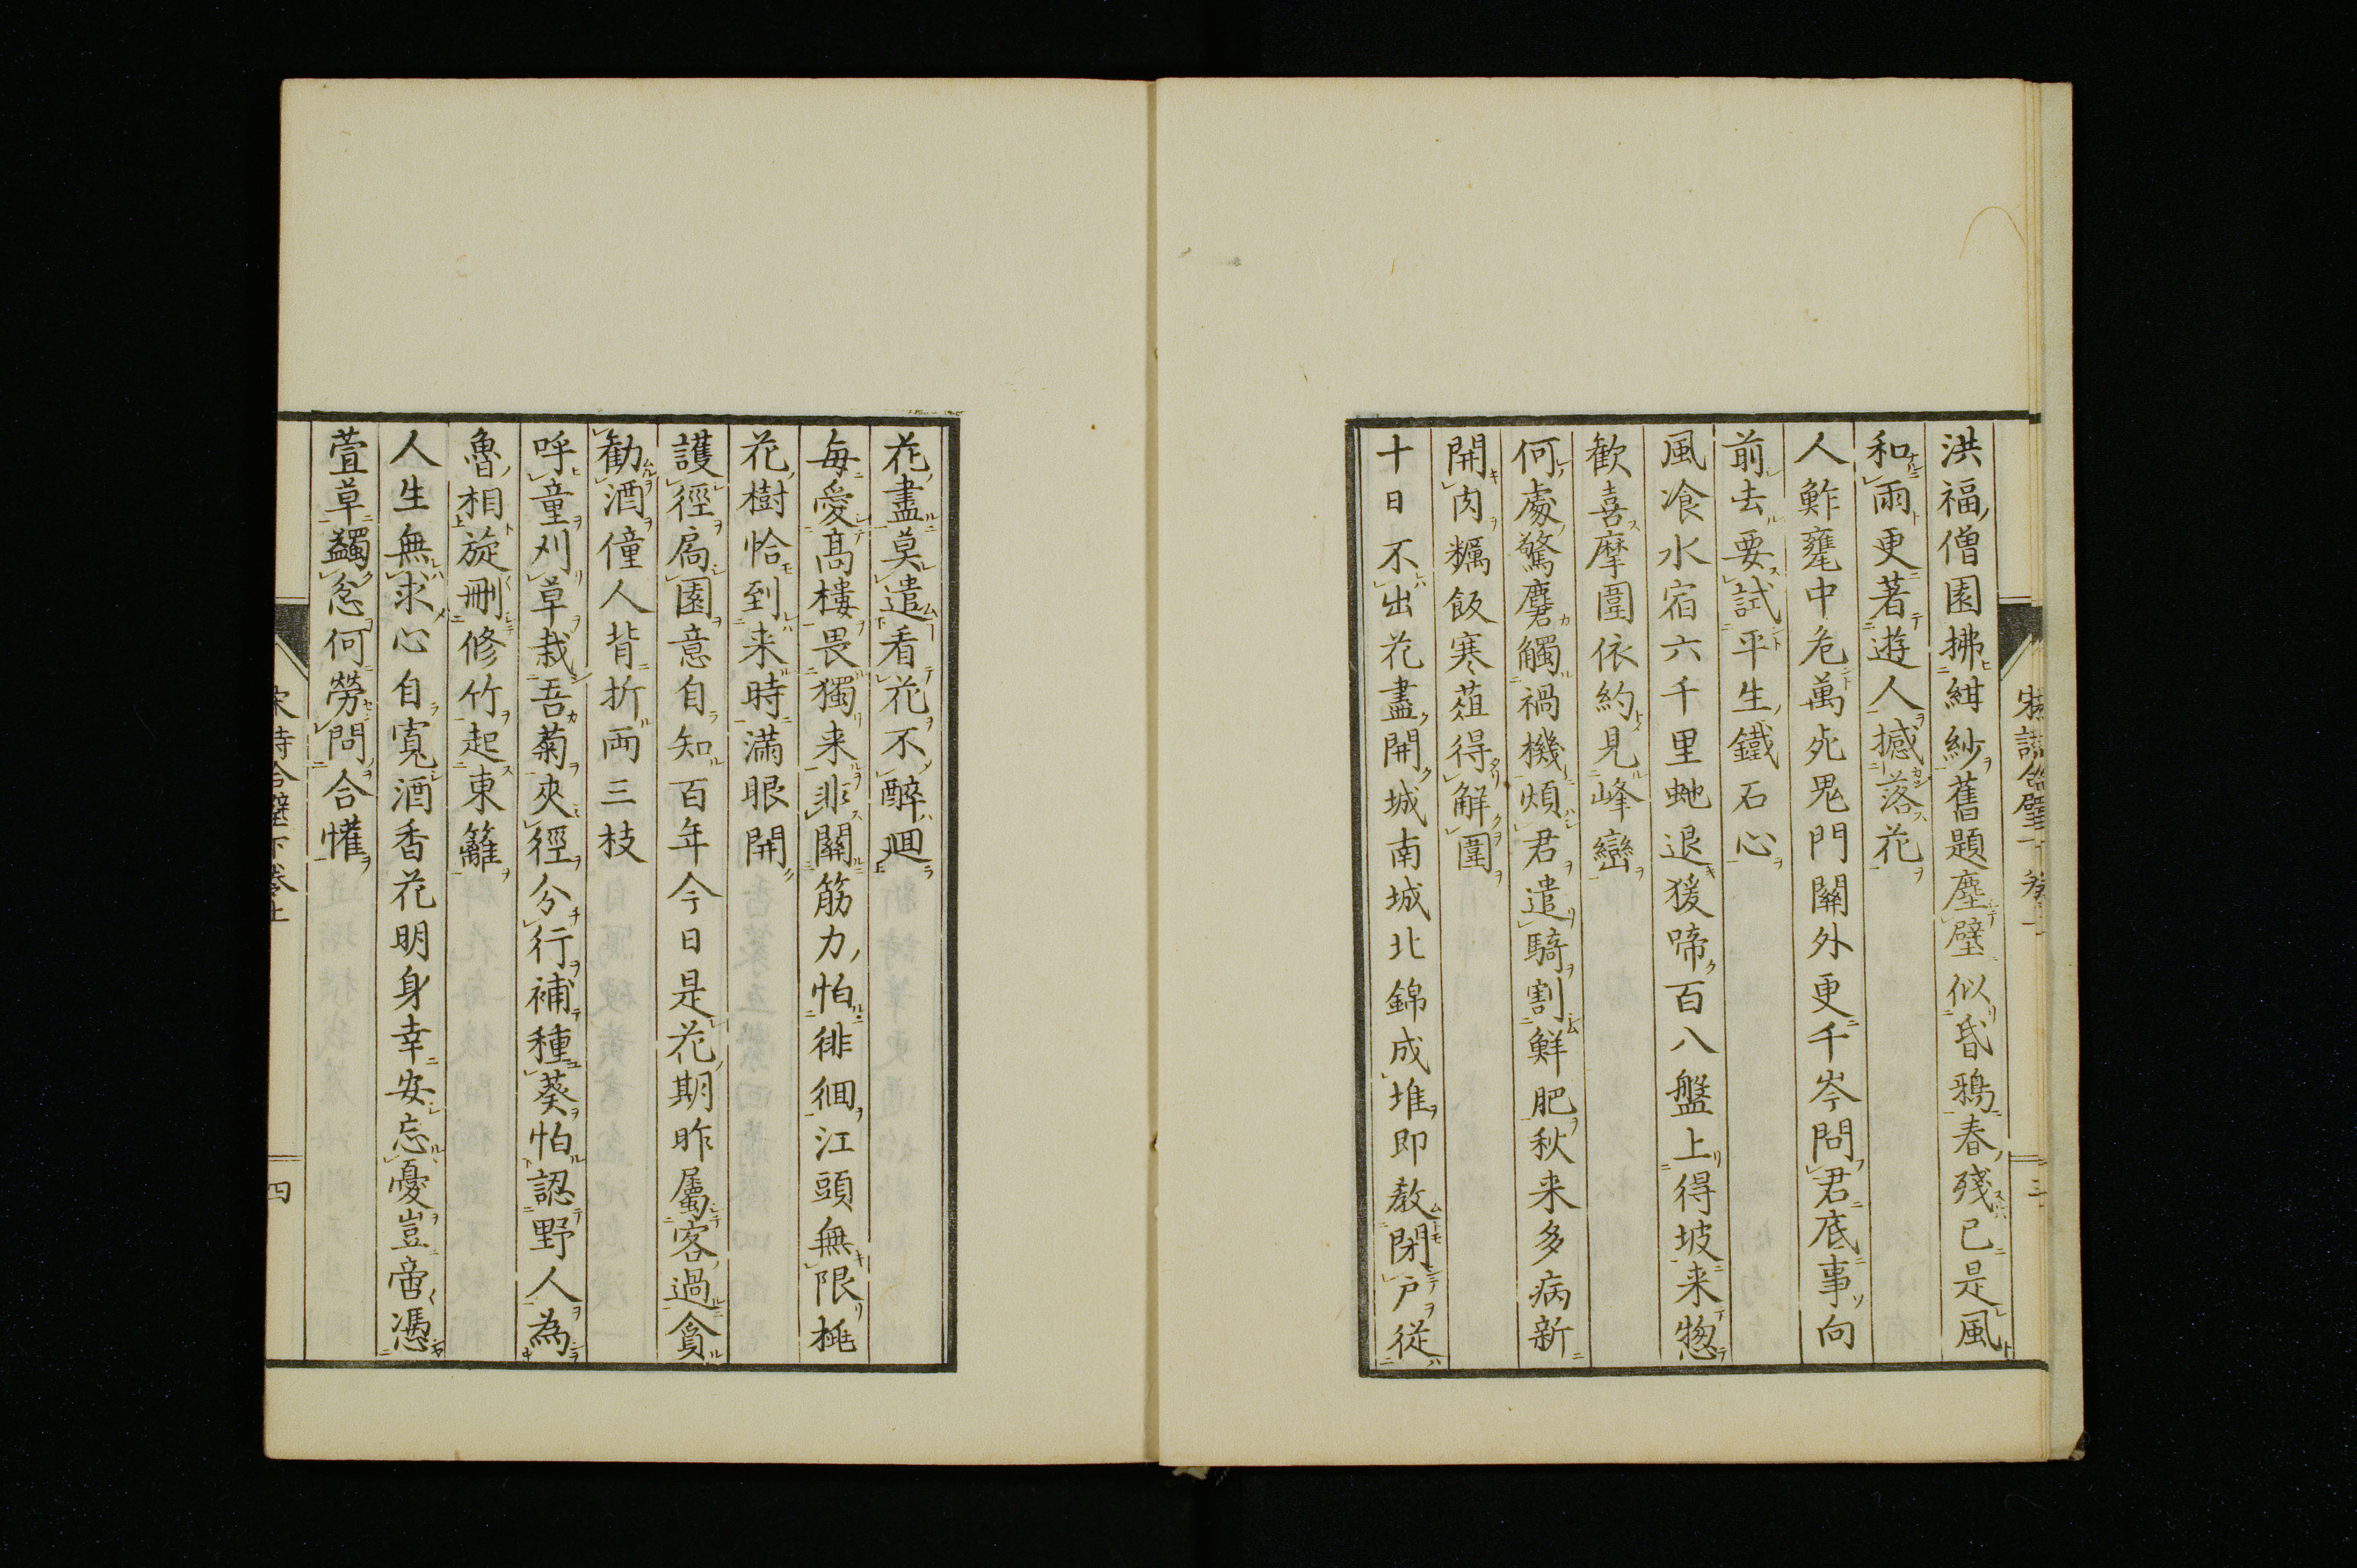 洪福僧園拂紺紗舊題塵壁似昏鴉春殘已是風
和雨更著遊人撼落花
人鮓甕中危萬死鬼門關外更千岑問君底事向
前去要試平生鐵石心
風飡水宿六千里虵退猨啼百八盤上得坡来惣
歡喜摩圍依約見峰巒
何處驚麏觸禍機煩君遣騎割鮮肥秋来多病新
開肉糲飯寒葅得解圍
十日不出花盡開城南城北錦成堆即教閉戸從
花盡莫遣看花不醉廻
每愛高樓畏獨来非關筋力怕徘徊江頭無限桃
花樹恰到来時滿眼開
護徑扃園意自知百年今日是花期昨屬客過貪
勸酒僮人背折両三枝
呼童刈草栽吾菊夾徑分行補種葵怕認野人為
魯相旋刪修竹起東籬
人生無求心自寬酒香花明身幸安忘憂豈啻憑
萱草蠲忿何勞問合懽
宋詩合璧下卷上
四